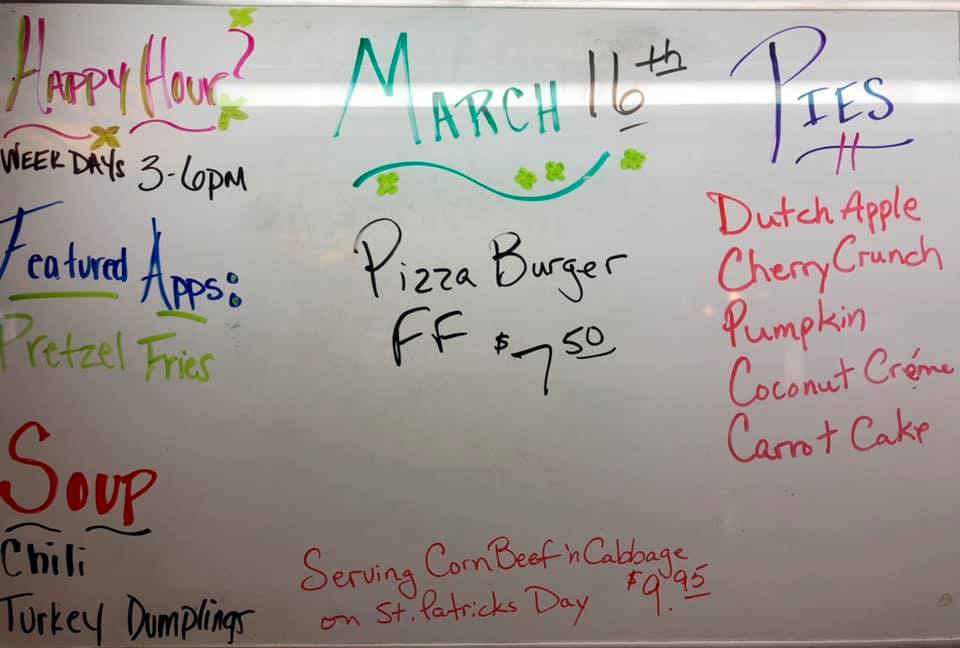 Happy Hour?
Weekdays 3-6pm
Featured Apps:
Pretzel Fries
Soup
Chili
Turkey Dumplings
March 16th
Pizza Burger
FF $7.50
Serving Corn Beef 'n Cabbage
on St. Patricks Day $9.95
Pies
Dutch Apple
Cherry Crunch
Pumpkin
Coconut Créme
Carrot Cake